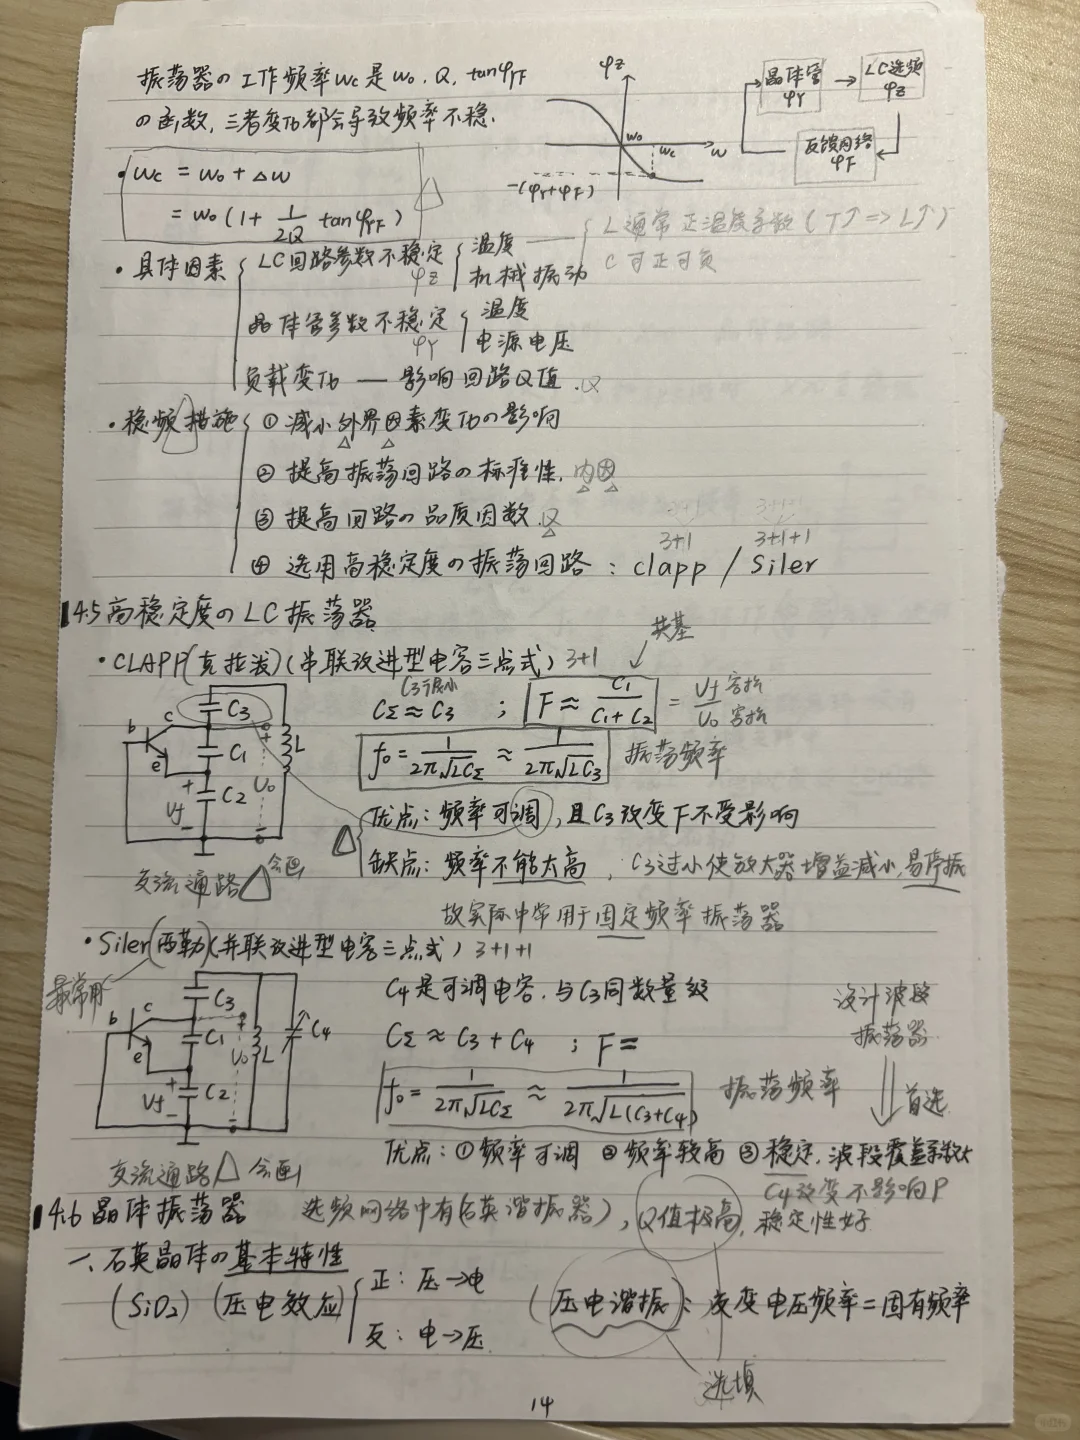 振荡器の工作频率ωc是ω₀、Q、tanφYF
の函数,三者变化都会导致频率不稳.
φZ
ω₀
ωc
ω
-(φY+φF)
晶体管
φY
LC选频
φZ
反馈网络
φF
· ωc = ω₀ + Δω
= ω₀ (1 + 1/2Q tanφYF)
· 具体因素
LC回路参数不稳定
φZ
温度
机械振动
L通常正温度系数(T↑ => L↑)
C可正可负
晶体管参数不稳定
φY
温度
电源电压
负载变化 — 影响回路Q值. Q
· 稳频措施
① 减小外界因素变化の影响
② 提高振荡回路の标准性. 内因
③ 提高回路の品质因数. Q
3+1
3+1+1
3+1
3+1+1
④ 选用高稳定度の振荡回路 : clapp / Siler
4.5 高稳定度のLC振荡器
共基
· CLAPP(克拉泼)(串联改进型电容三点式) 3+1
C3很小
CΣ≈C3 ; F ≈ C1/(C1+C2) = Uf/U₀ 容抗 容抗
f₀ = 1/(2π√LCΣ) ≈ 1/(2π√LC3) 振荡频率
b c e C3 C1 C2 L + - Uf U₀ + -
优点: 频率可调,且C3改变F不受影响
缺点: 频率不能太高, C3过小使放大器增益减小,易停振
交流通路△会画
故实际中常用于固定频率振荡器
· Siler(西勒)(并联改进型电容三点式) 3+1+1
最常用
C4是可调电容.与C3同数量级
设计波段
振荡器
首选
b c e C3 C1 C2 L C4 + - Uf U₀ + -
CΣ ≈ C3 + C4 ; F =
f₀ = 1/(2π√LCΣ) ≈ 1/(2π√L(C3+C4)) 振荡频率
优点: ①频率可调 ②频率较高 ③稳定,波段覆盖系数大
C4改变不影响F
交流通路△会画
4.6 晶体振荡器 选频网络中有(石英谐振器), Q值极高,稳定性好
一、石英晶体の基本特性
(SiO2) (压电效应)
正: 压→电
反: 电→压
(压电谐振): 交变电压频率=固有频率
选填
14